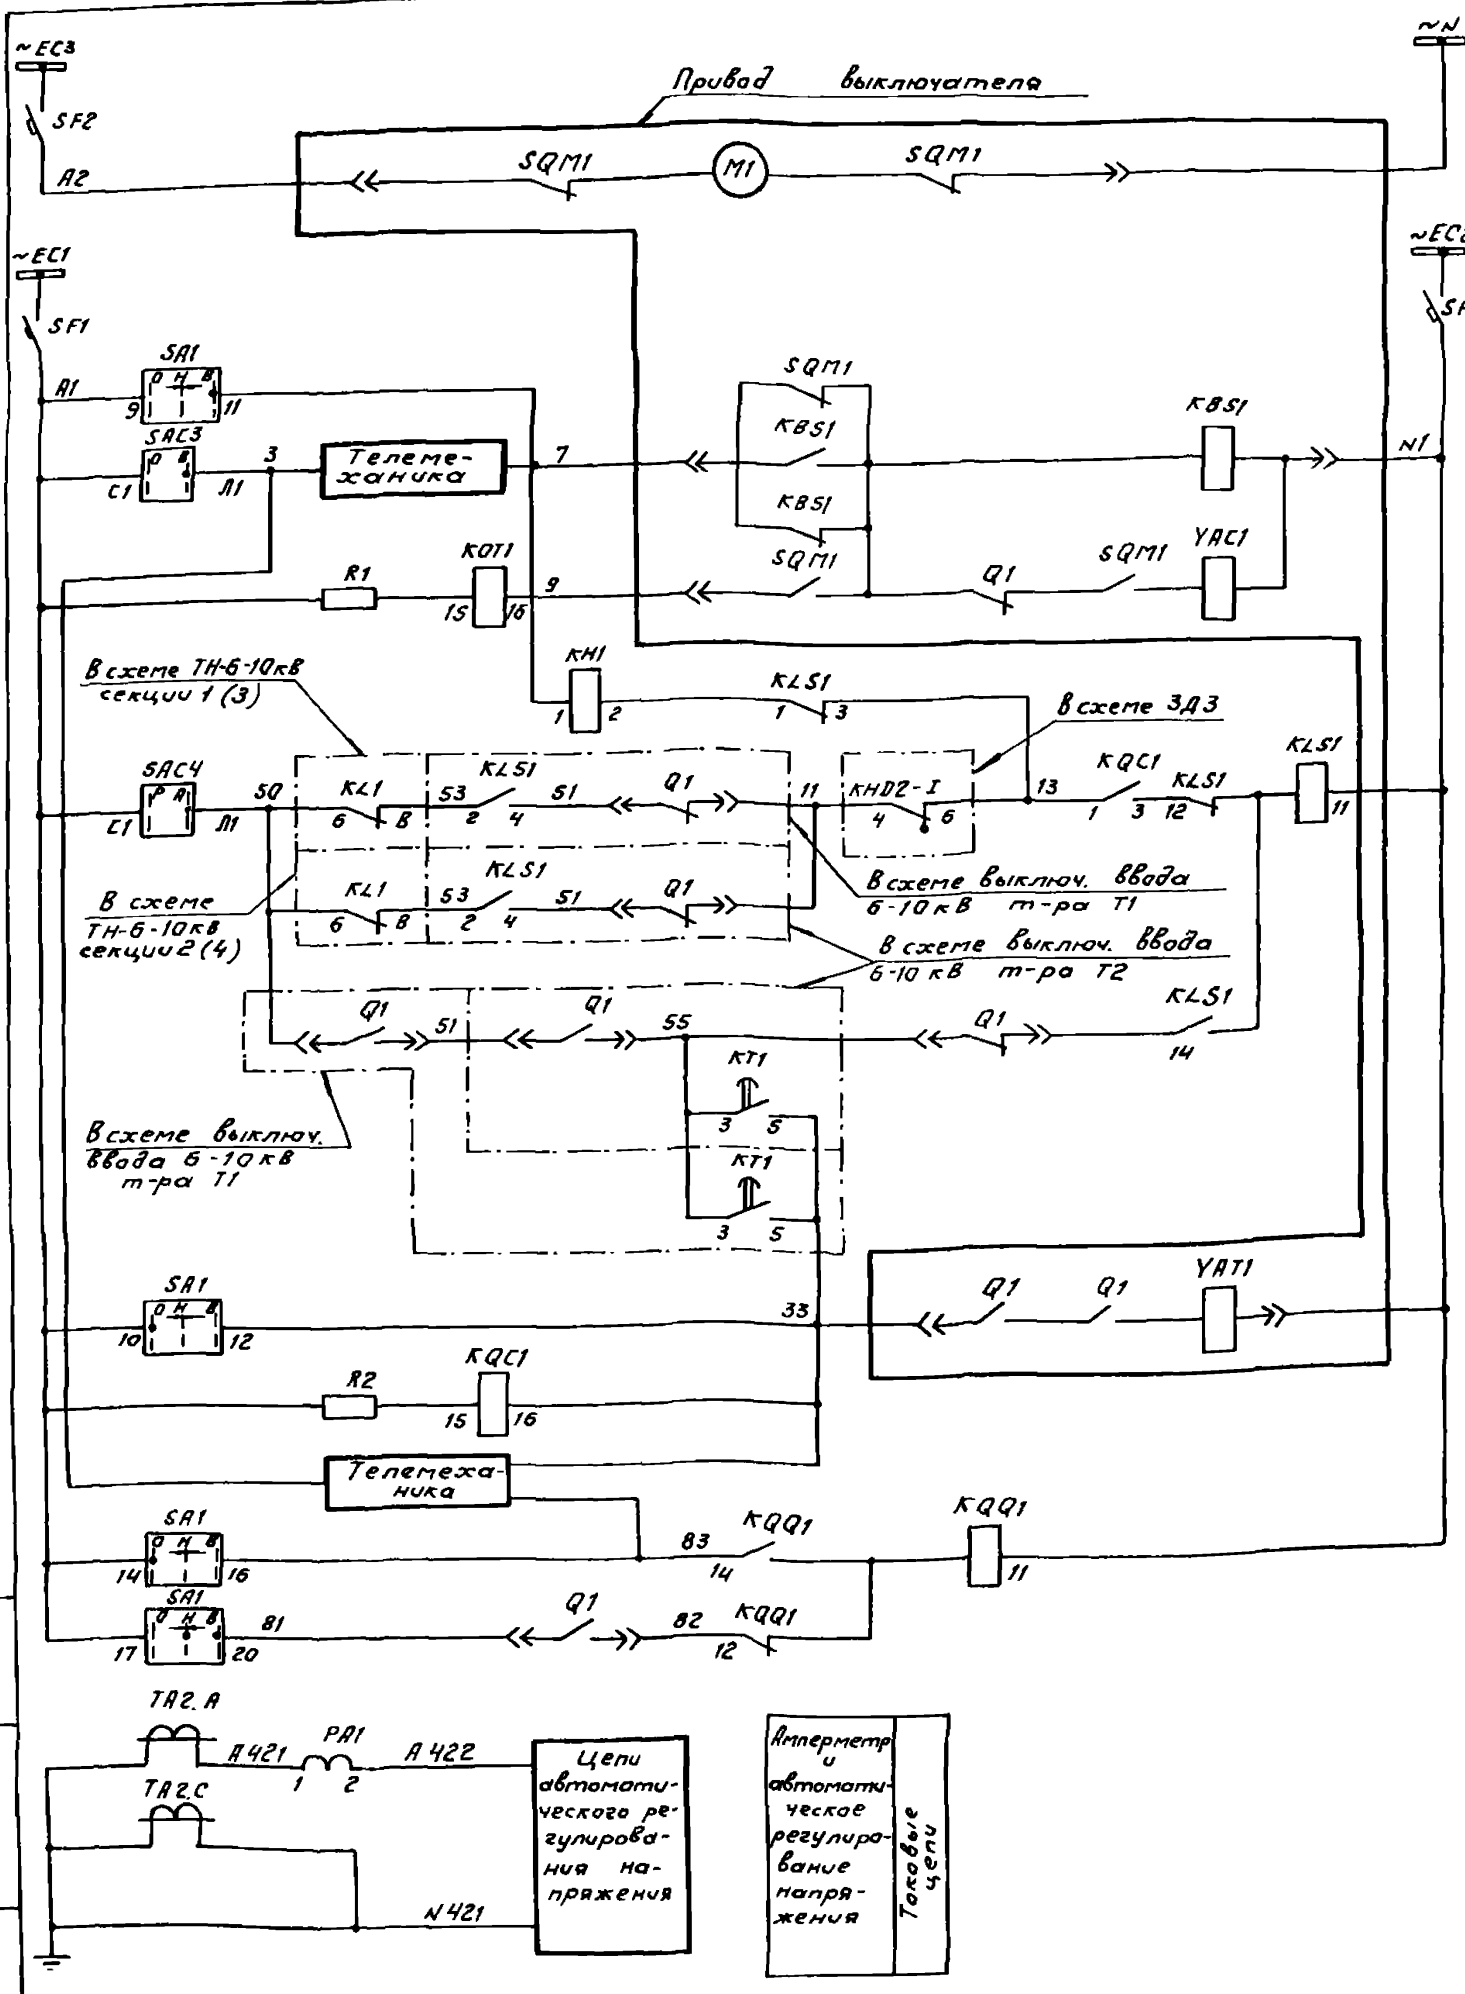 ~ЕС3
~N
Привод выключателя
SF2
SQM1
M1
SQM1
А2
~ЕС1
SF1
SA1
О Н В
А1
9
11
SQM1
KBS1
SAC3
О В
3
Телеме-
ханика
7
KBS1
N1
С1
Л1
KBS1
R1
KQT1
9
SQM1
Q1
SQM1
YAC1
15
16
В схеме ТН-6-10кВ
секции 1 (3)
КН1
1
2
KLS1
1
3
В схеме ЗДЗ
SAC4
Р А
50
KL1
53
KLS1
51
Q1
11
KHD2-I
13
KQC1
KLS1
KLS1
С1
Л1
6
8
2
4
4
6
1
3
12
11
В схеме
ТН-6-10кВ
секции 2 (4)
KL1
53
KLS1
51
Q1
6
8
2
4
В схеме выключ. ввода
6-10 кВ т-ра Т1
В схеме выключ. ввода
6-10 кВ т-ра Т2
Q1
51
Q1
55
Q1
KLS1
14
KT1
3
5
В схеме выключ.
ввода 6-10 кВ
т-ра Т1
KT1
3
5
SA1
О Н В
10
12
33
Q1
Q1
YAT1
R2
KQC1
15
16
Телемеха-
ника
SA1
О Н В
14
16
83
KQQ1
14
KQQ1
11
SA1
О Н В
17
20
81
Q1
82
KQQ1
12
TA2.A
А421
PA1
1
2
А422
TA2.C
N421
Цепи
автомати-
ческого ре-
гулирова-
ния на-
пряжения
Амперметр
и
автомати-
ческое
регулиро-
вание
напря-
жения
Токовые
цепи